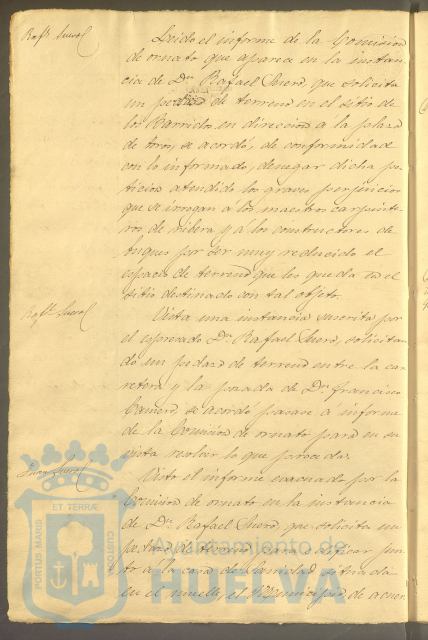 Leido el informe de la Comision
de ornato que aparece en la instan-
cia de Dn Rafael que solicita
un pedazo de terreno en el sitio de
los en direccion a la plaza
de toros, se acordó, de conformidad
con lo informado, denegar dicha pe-
ticion atendido los graves perjuicios
que se irrogan a los maestros carpinte-
ros de rivera y á los constructores de
buques por ser muy reducido el
espacio de terreno que les queda en el
sitio destinado con tal objeto.
Vista una instancia suscrita por
el espresado Dn Rafael solicitan-
do un pedazo de terreno entre la car-
retera y la posada de Dn Francisco
se acordó pasase á informe
de la Comision de ornato para en su
vista resolver lo que proceda.
Visto el informe evacuado por la
Comision de ornato en la instancia
de Dn Rafael que solicita un
pedazo de terreno para edificar jun-
to á la casa de Sanidad situada
en el muelle, el municipio de acuer-
PORTUS MARIS ET TERRÆ CUSTODIA
Ayuntamiento de
HUELVA